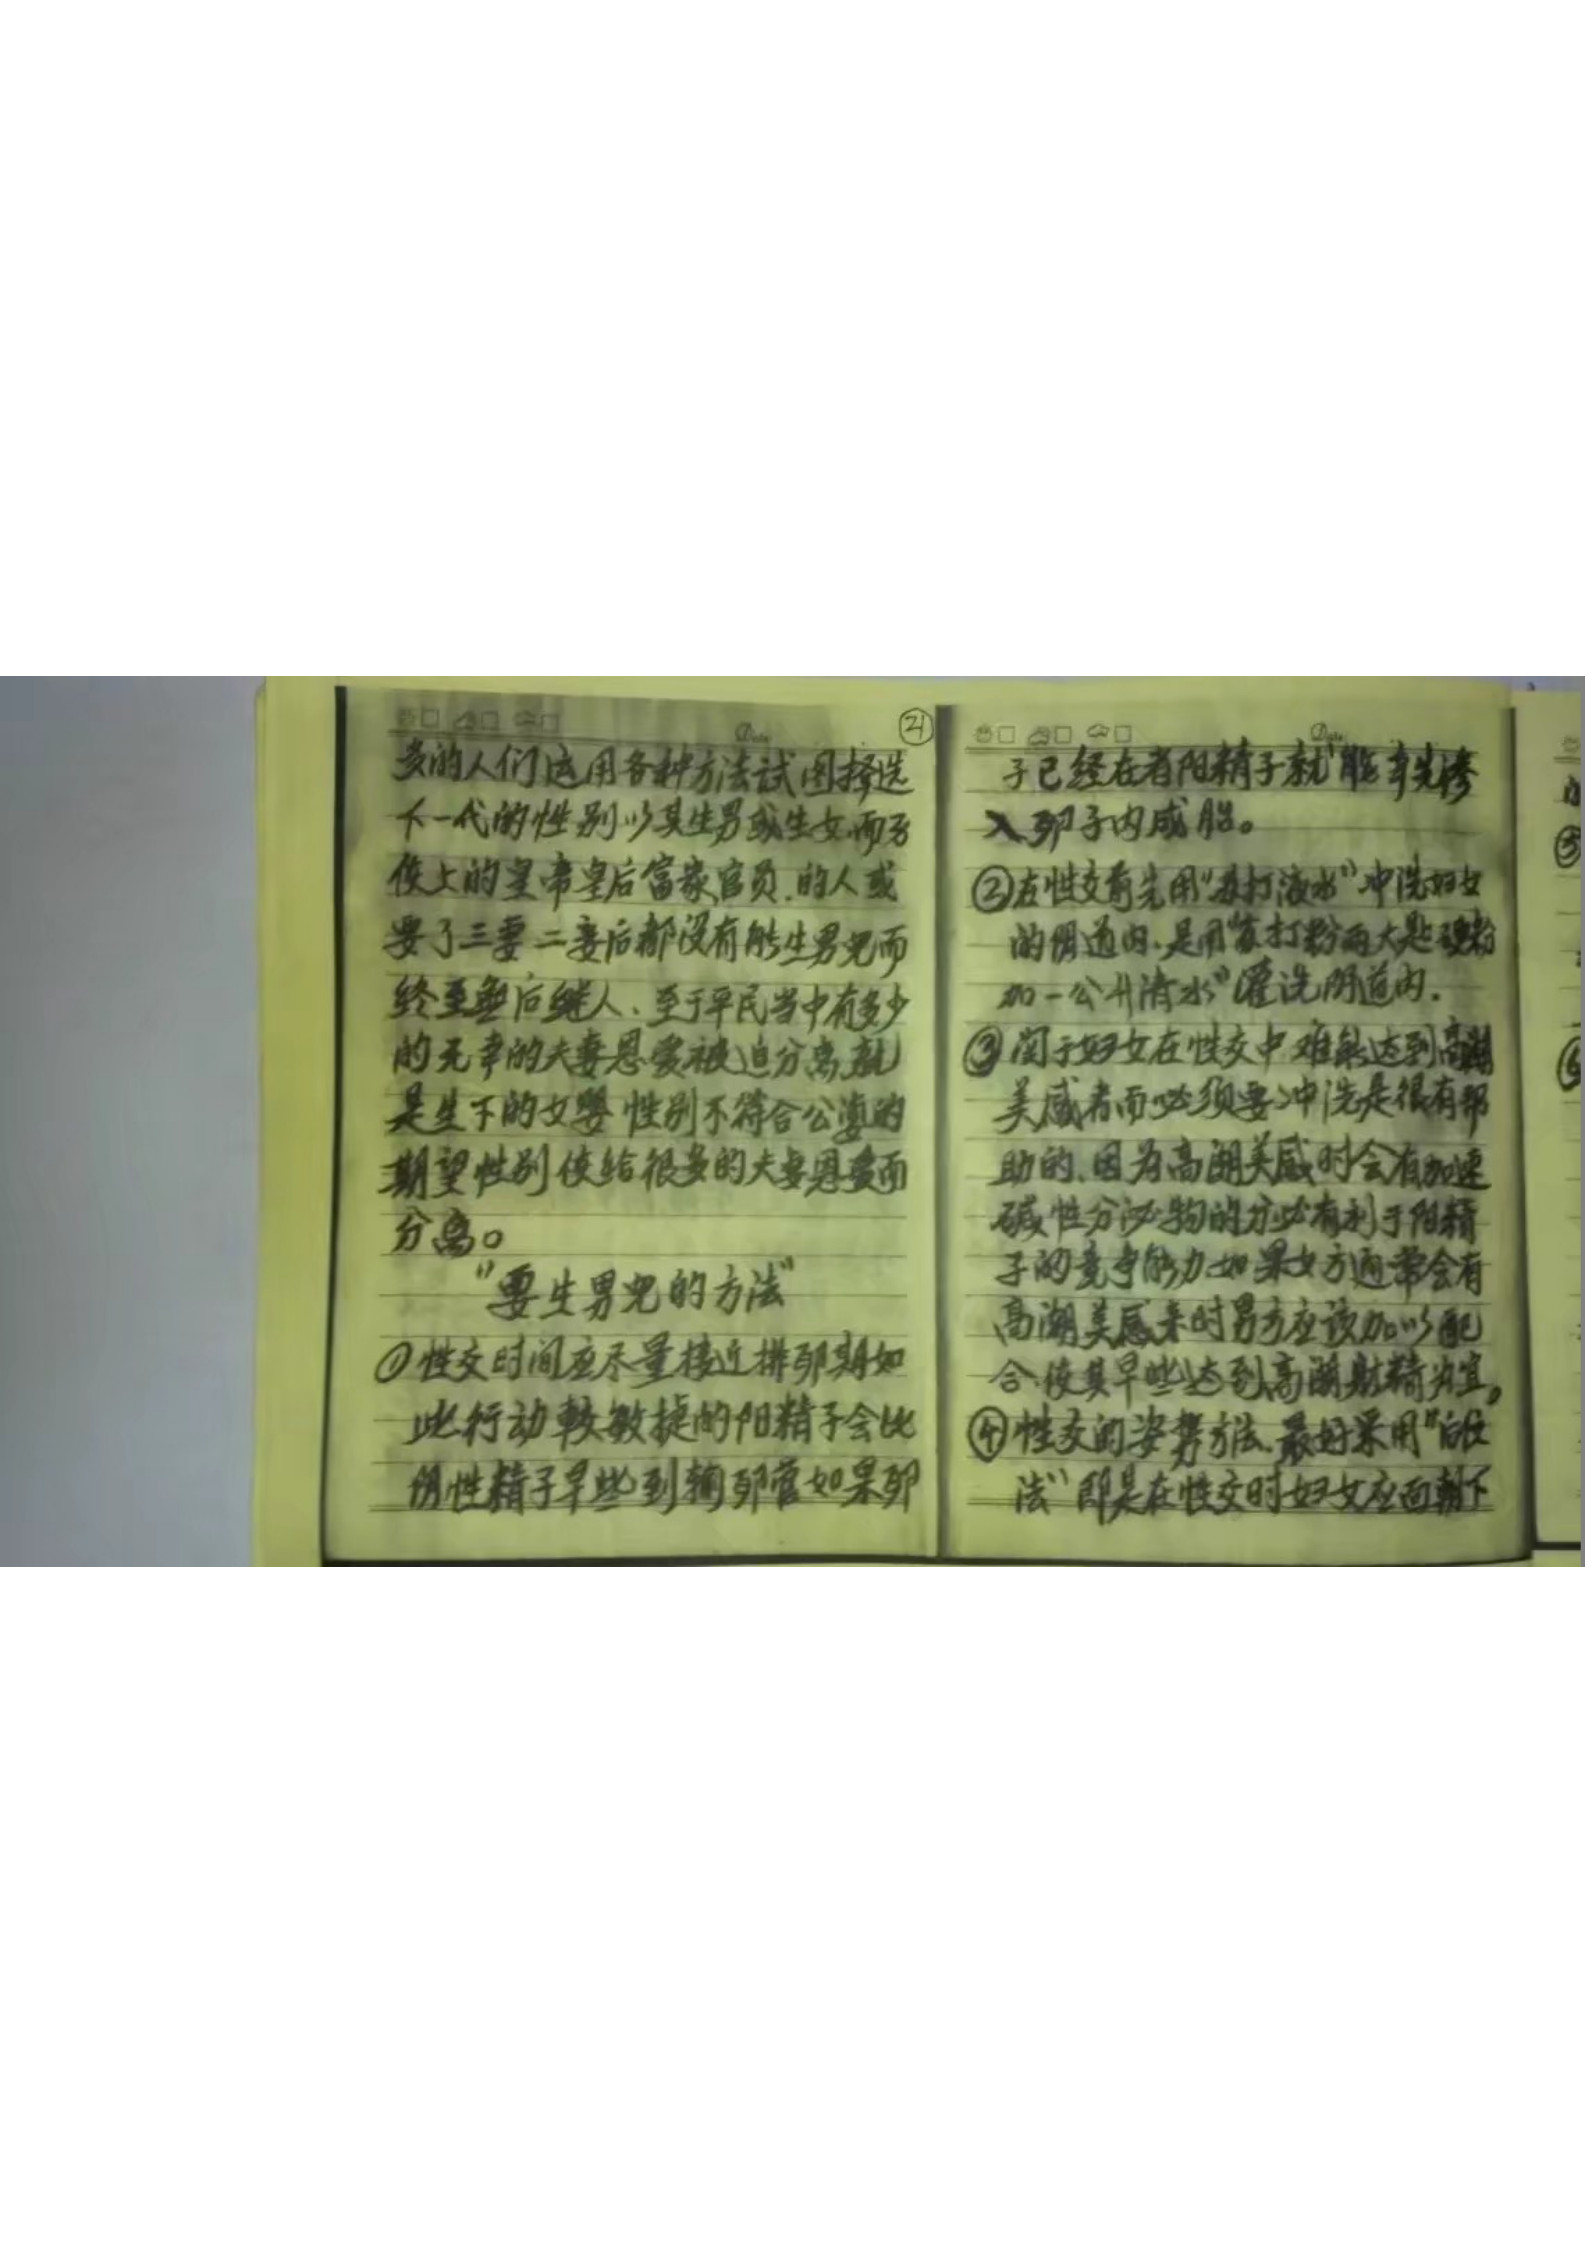 Date
21
多的人们运用各种方法試图择选
下一代的性别以其生男或生女.而致
使上的皇帝皇后富豪官员.的人或
娶了三妻二妾后都没有能生男児而
终至無后継人、至于平民当中有多少
的无幸的夫妻恩爱被迫分离.就
是生下的女嬰性别不符合公婆的
期望性别使给很多的夫妻恩爱而
分离。
"要生男児的方法"
①性交时间应尽量接近排卵期如
此行动較敏捷的阳精子会比
阴性精子早些到輸卵管如果卵
Date
子已经在者阳精子就能率先滲
入卵子内成胎。
②在性交前先用"苏打液水"冲洗妇女
的阴道内.是用"苏打粉两大匙
加一公升清水"灌洗阴道内.
③関于妇女在性交中难能达到高潮
美感者而必须要冲洗是很有帮
助的.因为高潮美感时会有加速
碱性分泌物的分泌有利于阳精
子的竟争能力如果女方通常会有
高潮美感来时男方应该加以配
合.使其早些达到高潮射精为宜。
④性交的姿势方法.最好采用"
法"即是在性交时妇女应面朝下
⑤
⑥